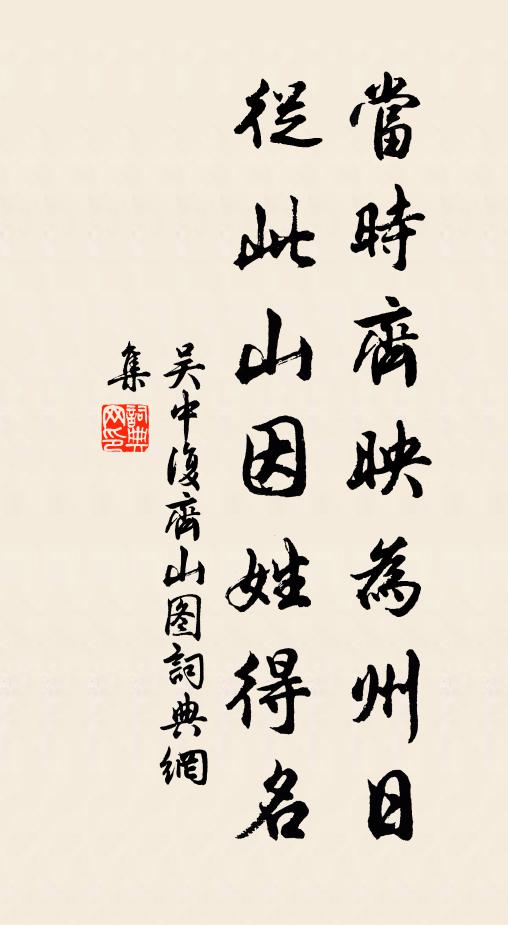 當時齊映為州日
從此山因姓得名
吳中復齊山图詞典網
集
詞典网印